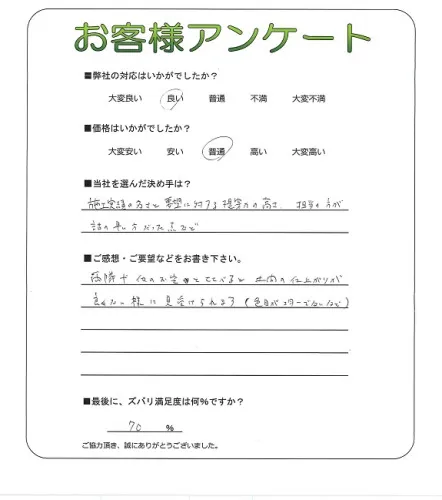 お客様アンケート
■弊社の対応はいかがでしたか？
大変良い 良い 普通 不満 大変不満
■価格はいかがでしたか？
大変安い 安い 普通 高い 大変高い
■当社を選んだ決め手は？
施工実績の多さと要望に対する提案力の高さ、担当の方が
話の早い方だった点など
■ご感想・ご要望などをお書き下さい。
他のお宅と比べると 仕上がりが
良くない様に見受けられます（色目が
■最後に、ズバリ満足度は何%ですか？
70 %
ご協力頂き、誠にありがとうございました。